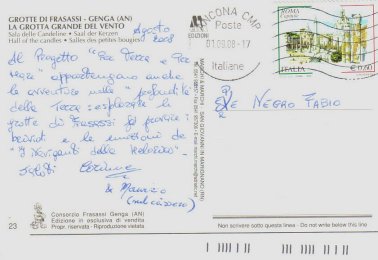 GROTTE DI FRASASSI - GENGA (AN)
LA GROTTA GRANDE DEL VENTO
Sala delle Candeline • Saal der Kerzen
Hall of the candles • Salles des petites bougies
Agosto
2008
Al Progetto "Per Terra e Per
Mare" appartengono anche
le avventure nelle "profondità
della Terra: esplorare la
grotte di Frasassi
e le emozioni dei
"Naviganti della
Saluti Corinne
& Maurizio
ANCONA CMP
Poste
01.09.08-17
Italiane
ROMA
ITALIA € 0,60
DE NEGRO FABIO
23
Consorzio Frasassi Genga (AN)
Edizione in esclusiva di vendita
Propr. riservata - Riproduzione vietata
Non scrivere sotto questa linea - Do not write below this line